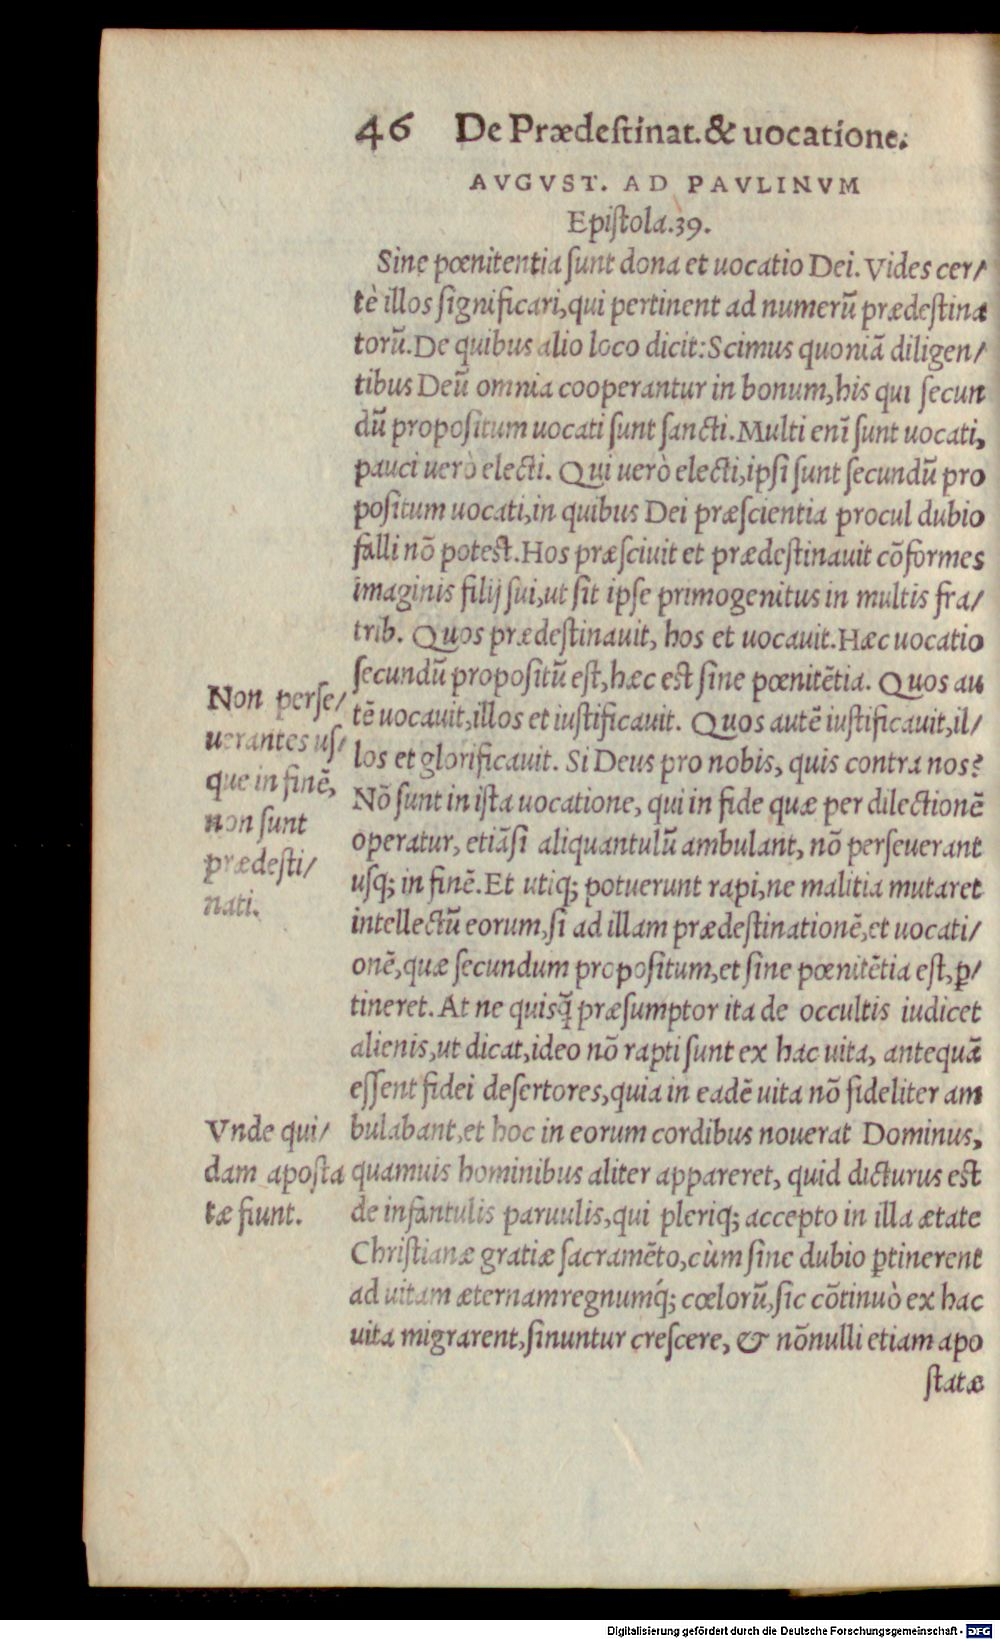 46 De Prædeſtinat. & uocatione.
AVGVST. AD PAVLINVM
Epiſtola.39.
Sine pœnitentia ſunt dona et uocatio Dei. Vides cer/
tè illos ſignificari,qui pertinent ad numerũ prædeſtina
torũ.De quibus alio loco dicit:Scimus quoniã diligen/
tibus Deũ omnia cooperantur in bonum,his qui ſecun
dũ propoſitum uocati ſunt ſancti.Multi enĩ ſunt uocati,
pauci uerò electi. Qui uerò electi,ipſi ſunt ſecundũ pro
poſitum uocati,in quibus Dei præſcientia procul dubio
falli nõ poteſt.Hos præſciuit et prædeſtinauit cõformes
imaginis filij ſui,ut ſit ipſe primogenitus in multis fra/
trib. Quos prædeſtinauit, hos et uocauit.Hæc uocatio
ſecundũ propoſitũ eſt,hæc eſt ſine pœnitẽtia. Quos au
tẽ uocauit,illos et iuſtificauit. Quos autẽ iuſtificauit,il/
los et glorificauit. Si Deus pro nobis, quis contra nos?
Nõ ſunt in iſta uocatione, qui in fide quæ per dilectionẽ
operatur, etiãſi aliquantulũ ambulant, nõ perſeuerant
uſq; in finẽ.Et utiq; potuerunt rapi,ne malitia mutaret
intellectũ eorum,ſi ad illam prædeſtinationẽ,et uocati/
onẽ,quæ ſecundum propoſitum,et ſine pœnitẽtia eſt,ꝑ/
tineret.At ne quisq̃ præſumptor ita de occultis iudicet
alienis,ut dicat,ideo nõ rapti ſunt ex hac uita, antequã
eſſent fidei deſertores,quia in eadẽ uita nõ fideliter am
bulabant,et hoc in eorum cordibus nouerat Dominus,
quamuis hominibus aliter appareret, quid dicturus eſt
de infantulis paruulis,qui pleriq; accepto in illa ætate
Chriſtianæ gratiæ ſacramẽto,cùm ſine dubio ꝑtinerent
ad uitam æternamregnumq́; cœlorũ,ſic cõtinuò ex hac
uita migrarent,ſinuntur creſcere, & nõnulli etiam apo
ſtatæ
Non perſe/
uerantes uſ/
que in finẽ,
non ſunt
prædeſti/
nati.
Vnde qui/
dam apoſta
tæ fiunt.
Digitalisierung gefördert durch die Deutsche Forschungsgemeinschaft - DFG